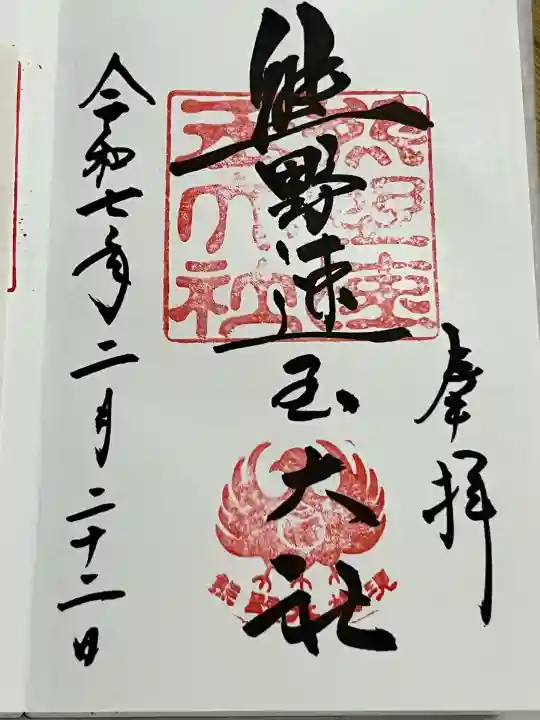 奉拝
熊野速玉大社
令和七年二月二十二日
熊野速玉大社